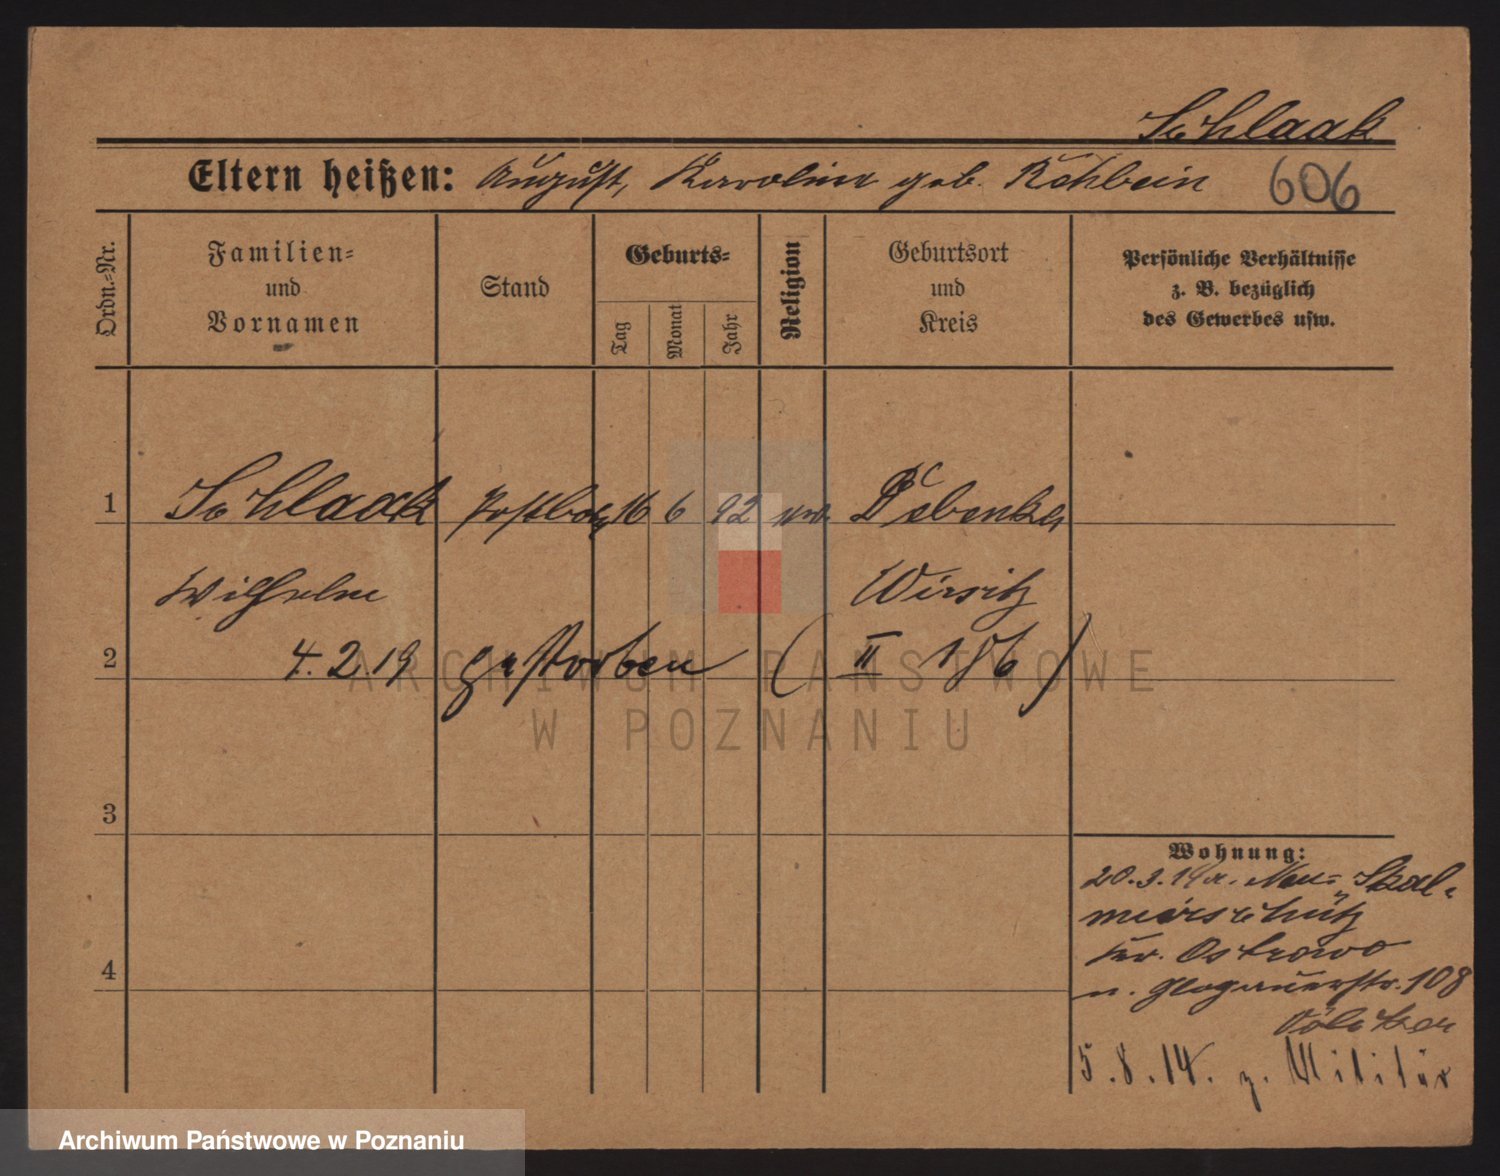 Schlaak
Eltern heißen: August, Karolina geb. Röhbein 606
Ordn.-Nr.
Familien-
und
Vornamen
Stand
Geburts-
Tag
Monat
Jahr
Religion
Geburtsort
und
Kreis
Persönliche Verhältnisse
z. B. bezüglich
des Gewerbes usw.
1 Schlaak Postbote 16 6 92 ev.
Wilhelm Wirsitz
2 4.2.19 gestorben ( II 186 )
3
4
Wohnung:
20.3.14 a. Neu-Skal-
mierschütz
Kr. Ostrowo
n. Glogauerstr. 108
5.8.14. z. Militär
ARCHIWUM PAŃSTWOWE
W POZNANIU
Archiwum Państwowe w Poznaniu